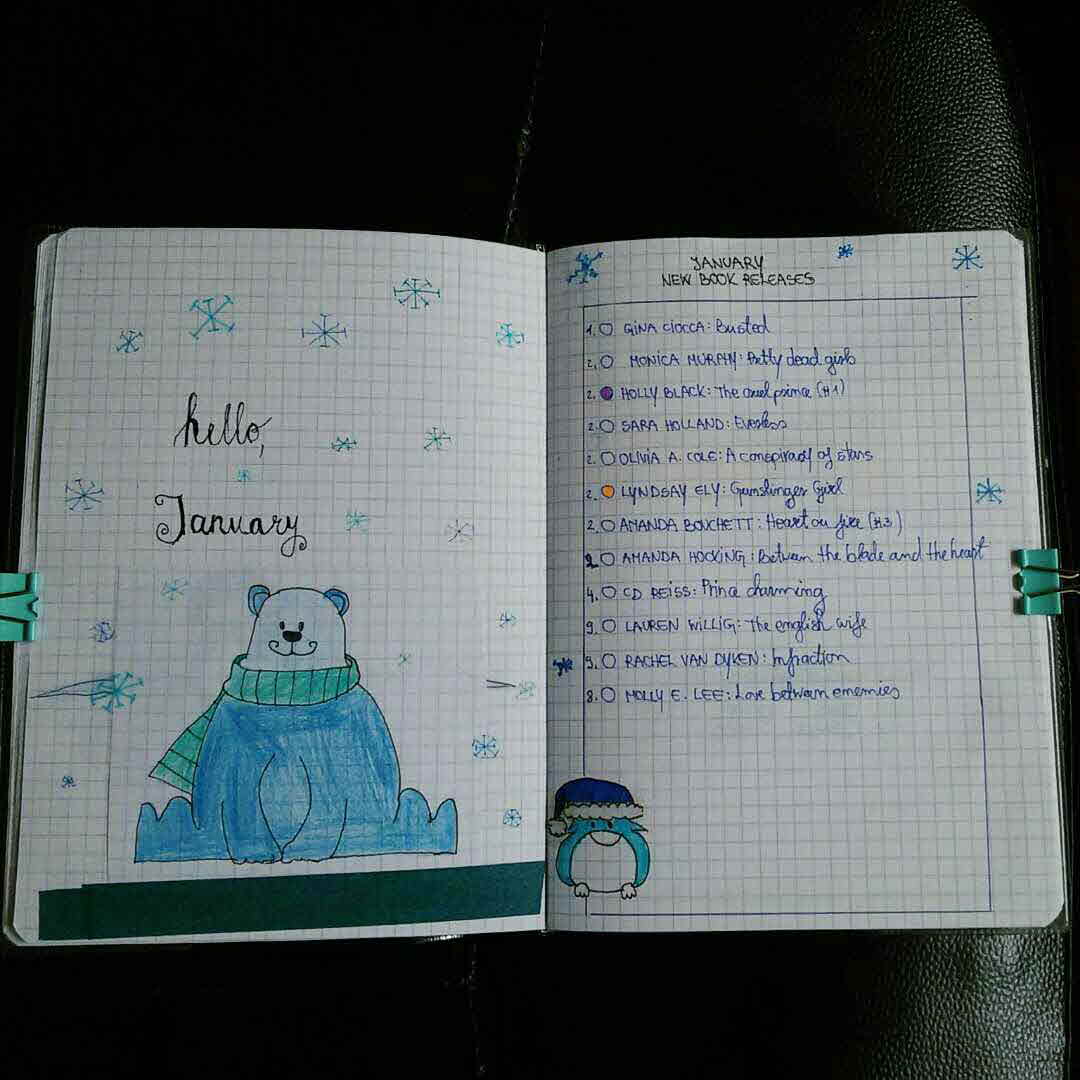 hello,
January
JANUARY
NEW BOOK RELEASES
1. GINA CIOCCA: Busted
2. MONICA MURPHY: Pretty dead girls
2. HOLLY BLACK: The cruel prince (#1)
2. SARA HOLLAND: Everless
2. OLIVIA A. COLE: A conspiracy of stars
2. LYNDSAY ELY: Gunslinger Girl
2. AMANDA BOUCHETT: Heart on fire (#3)
2. AMANDA HOCKING: Between the blade and the heart
4. CD REISS: Prince charming
9. LAUREN WILLIG: The english wife
9. RACHEL VAN DYKEN: Infraction
8. MOLLY E. LEE: Love between enemies